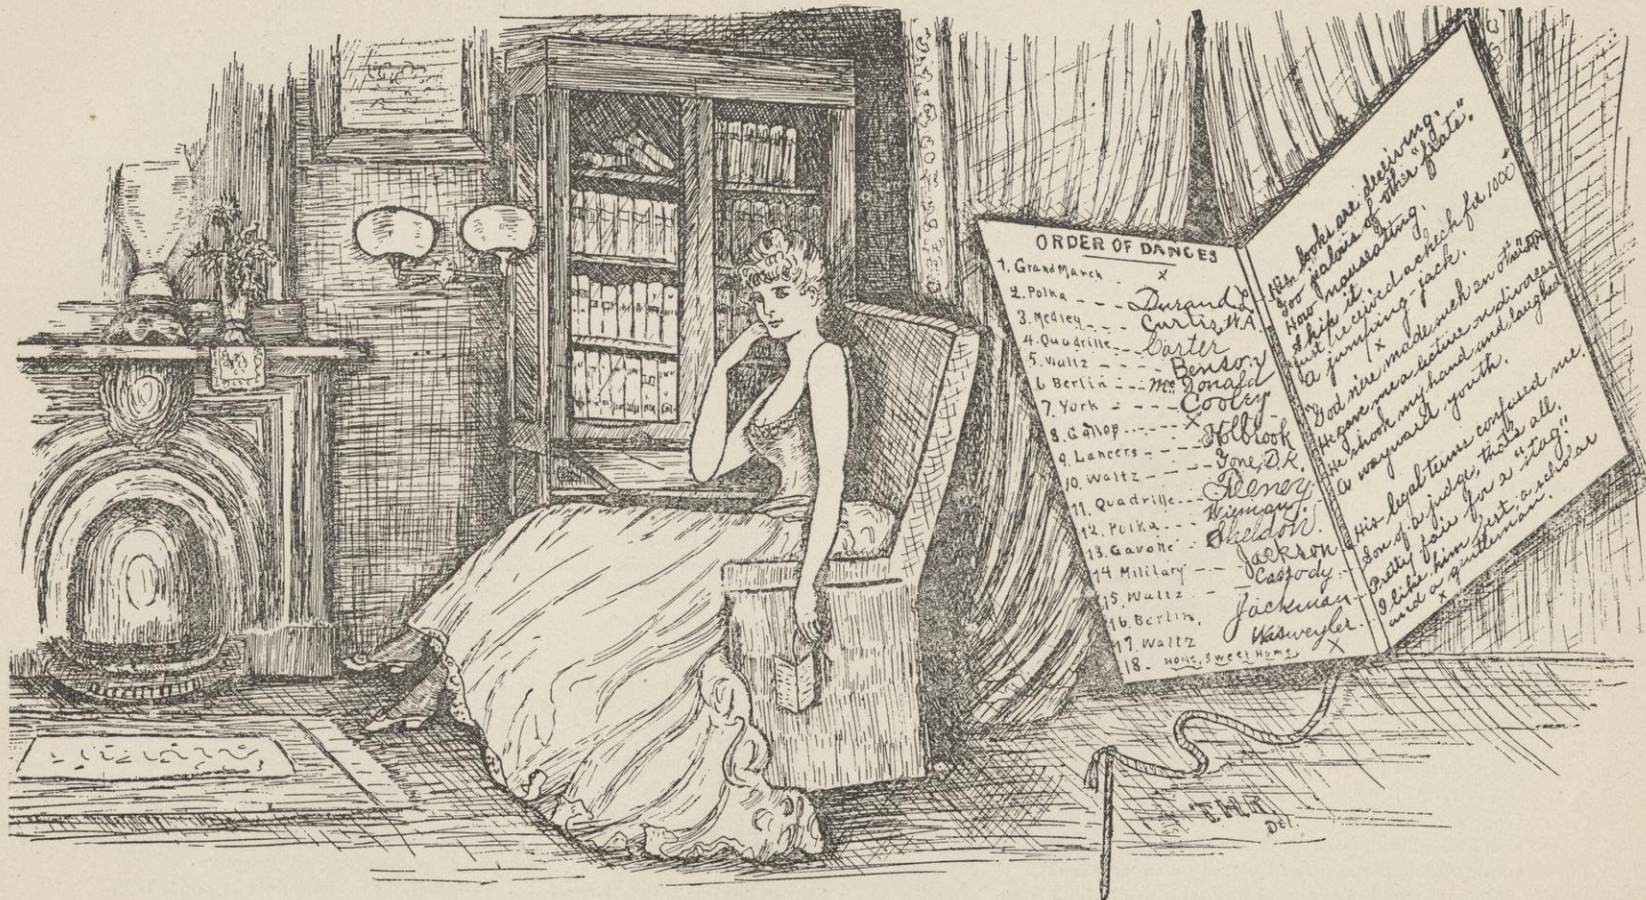 ORDER OF DANCES
1. Grand March x
2. Polka - - - Durand L
3. Medley - - - Curtis, W.A.
4. Quadrille - - - Carter
5. Waltz - - - Benson
6 Berlin - - - McDonald
7. York - - - Cooley
8. Gallop - - - x
9. Lancers - - - Holbrook
10. Waltz - - - Tone, D.R.
11. Quadrille - - -
12. Polka - - - Wieman, J.
13. Gavotte - Sheldon
14 Military - - - Jackson
15. Waltz - - Cassody
16. Berlin, Jackman
17. Waltz Wasweyler
18. - Home, Sweet Home x
His looks are "deceiving."
Too jealous of other "flats."
How nauseating.
Skip it
Just received a check for 1000
"a jumping-jack."
x
"God ne'er made such an other"
He gave me a lecture on divorces
He shook my hand and laughed
A wayward youth.
His legal terms confused me.
Son of a judge, that's all.
Pretty fair for a "stag"
I like him best, a scholar
and a gentleman.
x
T.H.R.
Del.